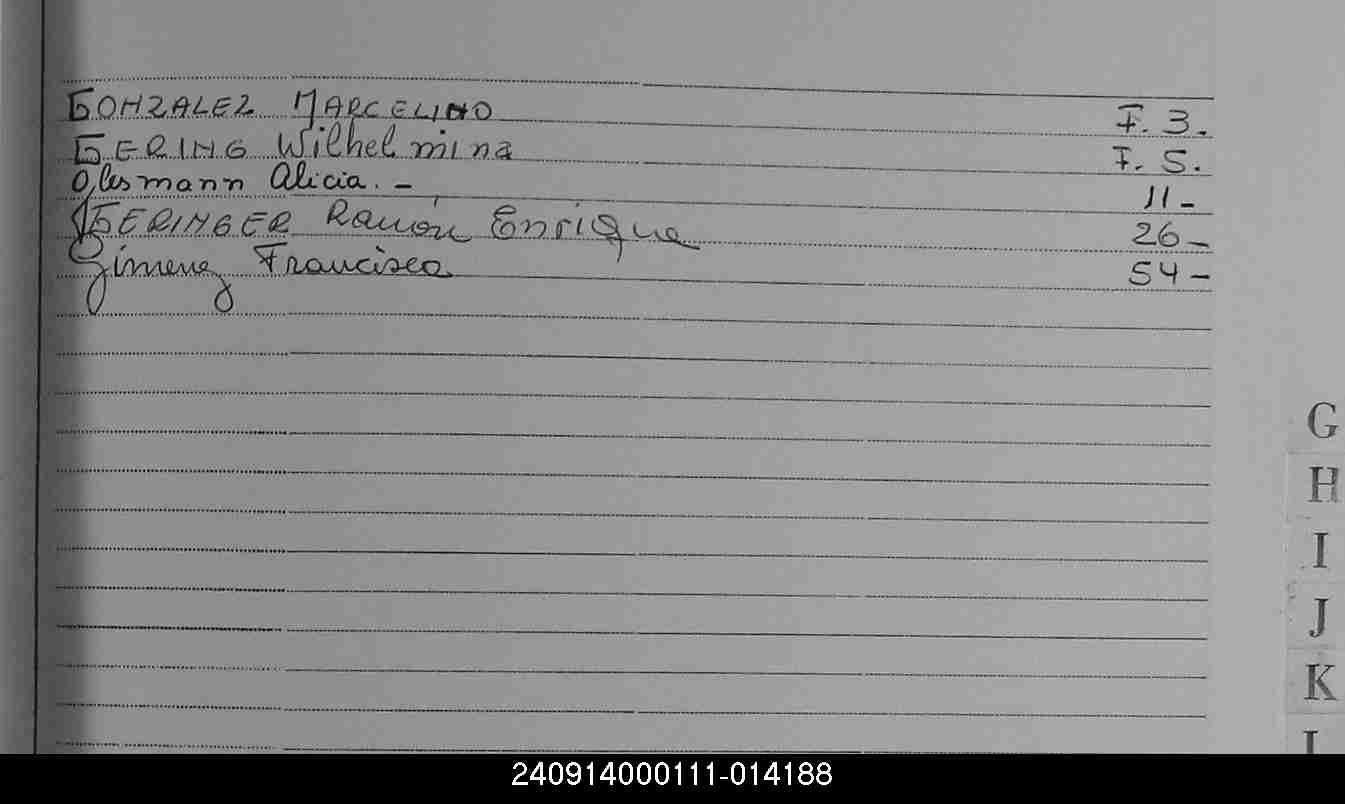 GONZALEZ MARCELINO F. 3.
GERING Wilhelmina F. 5.
Alicia. - 11 -
GERINGER Ramón Enrique 26 -
Gimenez Francisco 54 -
G
H
I
J
K
L
240914000111-014188